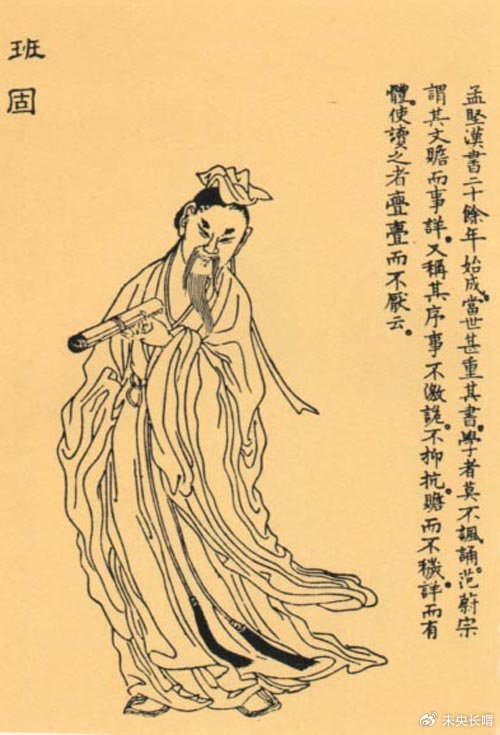 孟堅漢書二十餘年始成。當世甚重其書。學者莫不諷誦。范蔚宗
謂其文贍而事詳。又稱其序事不激詭。不抑抗。贍而不穢。詳而有
體。使讀之者亹亹而不厭云。
班固
未央长喟